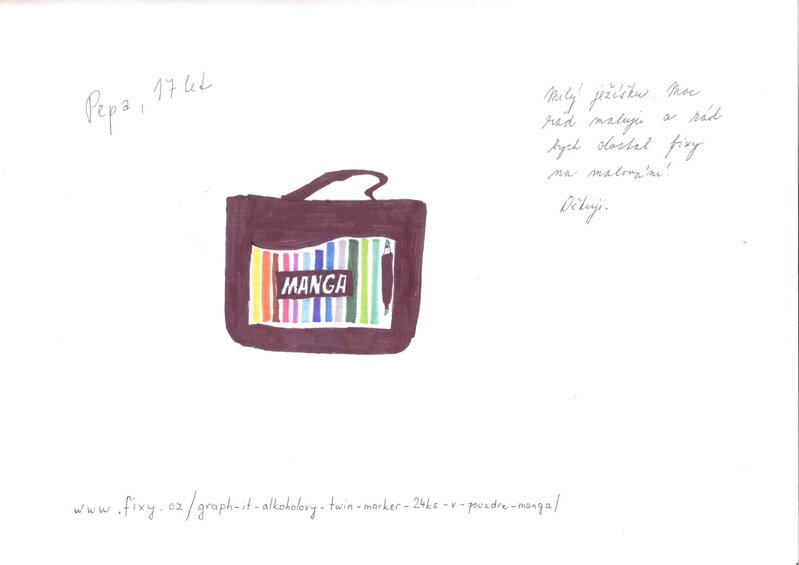 Pepa, 17 let
Milý ježíšku. Moc
rád maluji a rád
bych dostal fixy
na malování!
Děkuji.
MANGA
www.fixy.cz/graph-it-alkoholovy-twin-marker-24ks-v-pouzdre-manga/